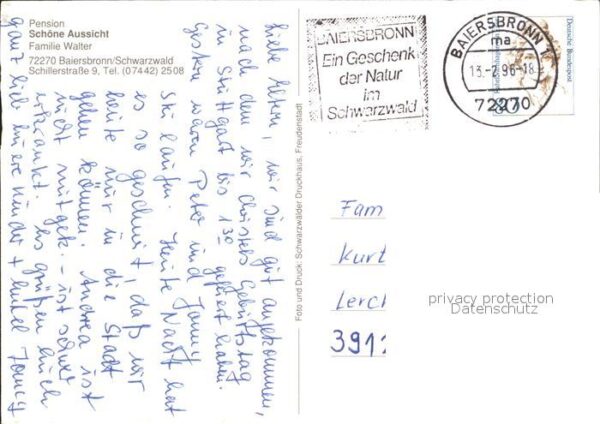 Pension
Schöne Aussicht
Familie Walter
72270 Baiersbronn/Schwarzwald
Schillerstraße 9, Tel. (07442) 2508
Liebe Eltern, wir sind gut angekommen,
nach dem wir Christels Geburtstag
in Stuttgart bis 1 30 gefeiert haben.
Gestern waren Peter und Jonny
Ski laufen. Heute Nacht hat
es so geschneit, daß wir
heute nur in die Stadt
gehen können. Andrea ist
nicht mitgek. – ist schwer
erkrankt. Es grüßen Euch
ganz lieb Eure Kinder + Enkel Jonny
Foto und Druck: Schwarzwälder Druckhaus, Freudenstadt
BAIERSBRONN
Ein Geschenk
der Natur
im
Schwarzwald
BAIERSBRONN 1
ma
13.-2.96-18
72270
Deutsche Bundespost
80
Fam
Kurt
Lerch
3912
privacy protection
Datenschutz